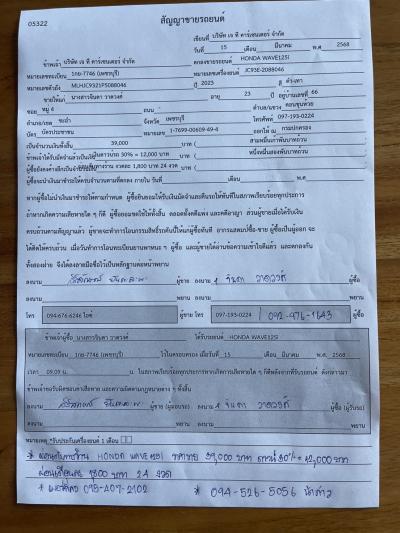 05322
สัญญาขายรถยนต์
เขียนที่ บริษัท เจ ที คาร์เซนเตอร์ จำกัด
วันที่ 15 เดือน มีนาคม พ.ศ 2568
ข้าพเจ้า บริษัท เจ ที คาร์เซนเตอร์ จำกัด ตกลงขายรถยนต์ HONDA WAVE125I
หมายเลขทะเบียน 1กย-7746 (เพชรบุรี) หมายเลขเครื่องยนต์ JC93E-2088046
หมายเลขตัวถัง MLHJC9321P5088046 ปี 2023 สี ดำ-เทา
ขายให้แก่ นางสาวจินดา วาดวงศ์ อายุ 23 ปี อยู่บ้านเลขที่ 66
ซอย หมู่ 4 ถนน - ตำบล/แขวง ดอนขุนห้วย
อำเภอ/เขต ชะอำ จังหวัด เพชรบุรี โทรศัพท์ 097-193-0224
บัตร บัตรประชาชน หมายเลข 1-7699-00609-49-4 ออกให้ ณ กรมปกครอง
เป็นจำนวนเงินทั้งสิ้น 39,000 บาท ( สามหมื่นเก้าพันบาทถ้วน
ข้าพเจ้าได้รับมัดจำแล้วเป็นเงิน เงินดาวน์ 30% = 12,000 บาท บาท ( หนึ่งหมื่นสองพันบาทถ้วน
ผู้ซื้อยังคงค้างอีกเป็นจำนวนเงิน ผ่อนชำระทางงวดละ 1,800 บาท 24 งวด บาท (
ผู้ซื้อจะนำเงินมาชำระให้ครบจำนวนตามที่ตกลง ภายใน วันที่ เดือน พ.ศ
หากผู้ซื้อไม่นำเงินมาชำระให้ตามกำหนด ผู้ซื้อยินยอมให้ริบเงินมัดจำและคืนรถให้ทันทีในสภาพเรียบร้อยทุกประการ
ถ้าหากเกิดความเสียหายใด ๆ ก็ดี ผู้ซื้อยอมชดใช้ให้ทั้งสิ้น ตลอดทั้งคดีแพ่ง และคดีอาญา ส่วนผู้ขายเมื่อได้รับเงิน
ครบถ้วนตามสัญญาแล้ว ผู้ขายจะทำการโอนกรรมสิทธิ์รถคันนี้ให้แก่ผู้ซื้อทันที อากรแสตมป์ซื้อ-ขาย ผู้ซื้อเป็นผู้ออก จะ
ได้คิดให้ครบถ้วน เมื่อวันทำการโอนทะเบียนยานพาหนะ ๆ ผู้ซื้อ และผู้ขายได้อ่านข้อความเข้าใจดีแล้ว และตกลงกัน
ทั้งสองฝ่าย จึงได้ลงลายมือชื่อไว้เป็นหลักฐานต่อหน้าพยาน
ลงนาม ผู้ขาย ลงนาม จินดา วาดวงศ์ ผู้ซื้อ
ลงนาม พยาน ลงนาม พยาน
โทร 094-676-6246 ไอซ์ ผู้ขาย โทร 097-193-0224 / 092-976-1643 ผู้ซื้อ
ข้าพเจ้าผู้ซื้อ นางสาวจินดา วาดวงศ์ ได้รับรถยนต์ HONDA WAVE125I
หมายเลขทะเบียน 1กย-7746 (เพชรบุรี) ไว้ในครอบครอง เมื่อวันที่ 15 เดือน มีนาคม พ.ศ. 2568
เวลา 09.09 น. ในสภาพเรียบร้อยทุกประการหากเกิดการเสียหายใด ๆ ก็ดีหลังจากที่รับรถยนต์ ดังกล่าวมา
ข้าพเจ้าขอรับผิดชอบค่าเสียหาย และความผิดตามกฎหมายต่าง ๆ ทั้งสิ้น
ลงนาม ผู้ขาย (ผู้มอบรถ) ลงนาม จินดา วาดวงศ์ ผู้ซื้อ (ผู้รับรถ)
ลงนาม พยาน ลงนาม พยาน
หมายเหตุ *รับประกันเครื่องยนต์ 1 เดือน
HONDA WAVE 125I 39,000 บาท ดาวน์ 30% = 12,000 บาท
1800 บาท 24 งวด
* 098-407-2102 * 094-526-5056